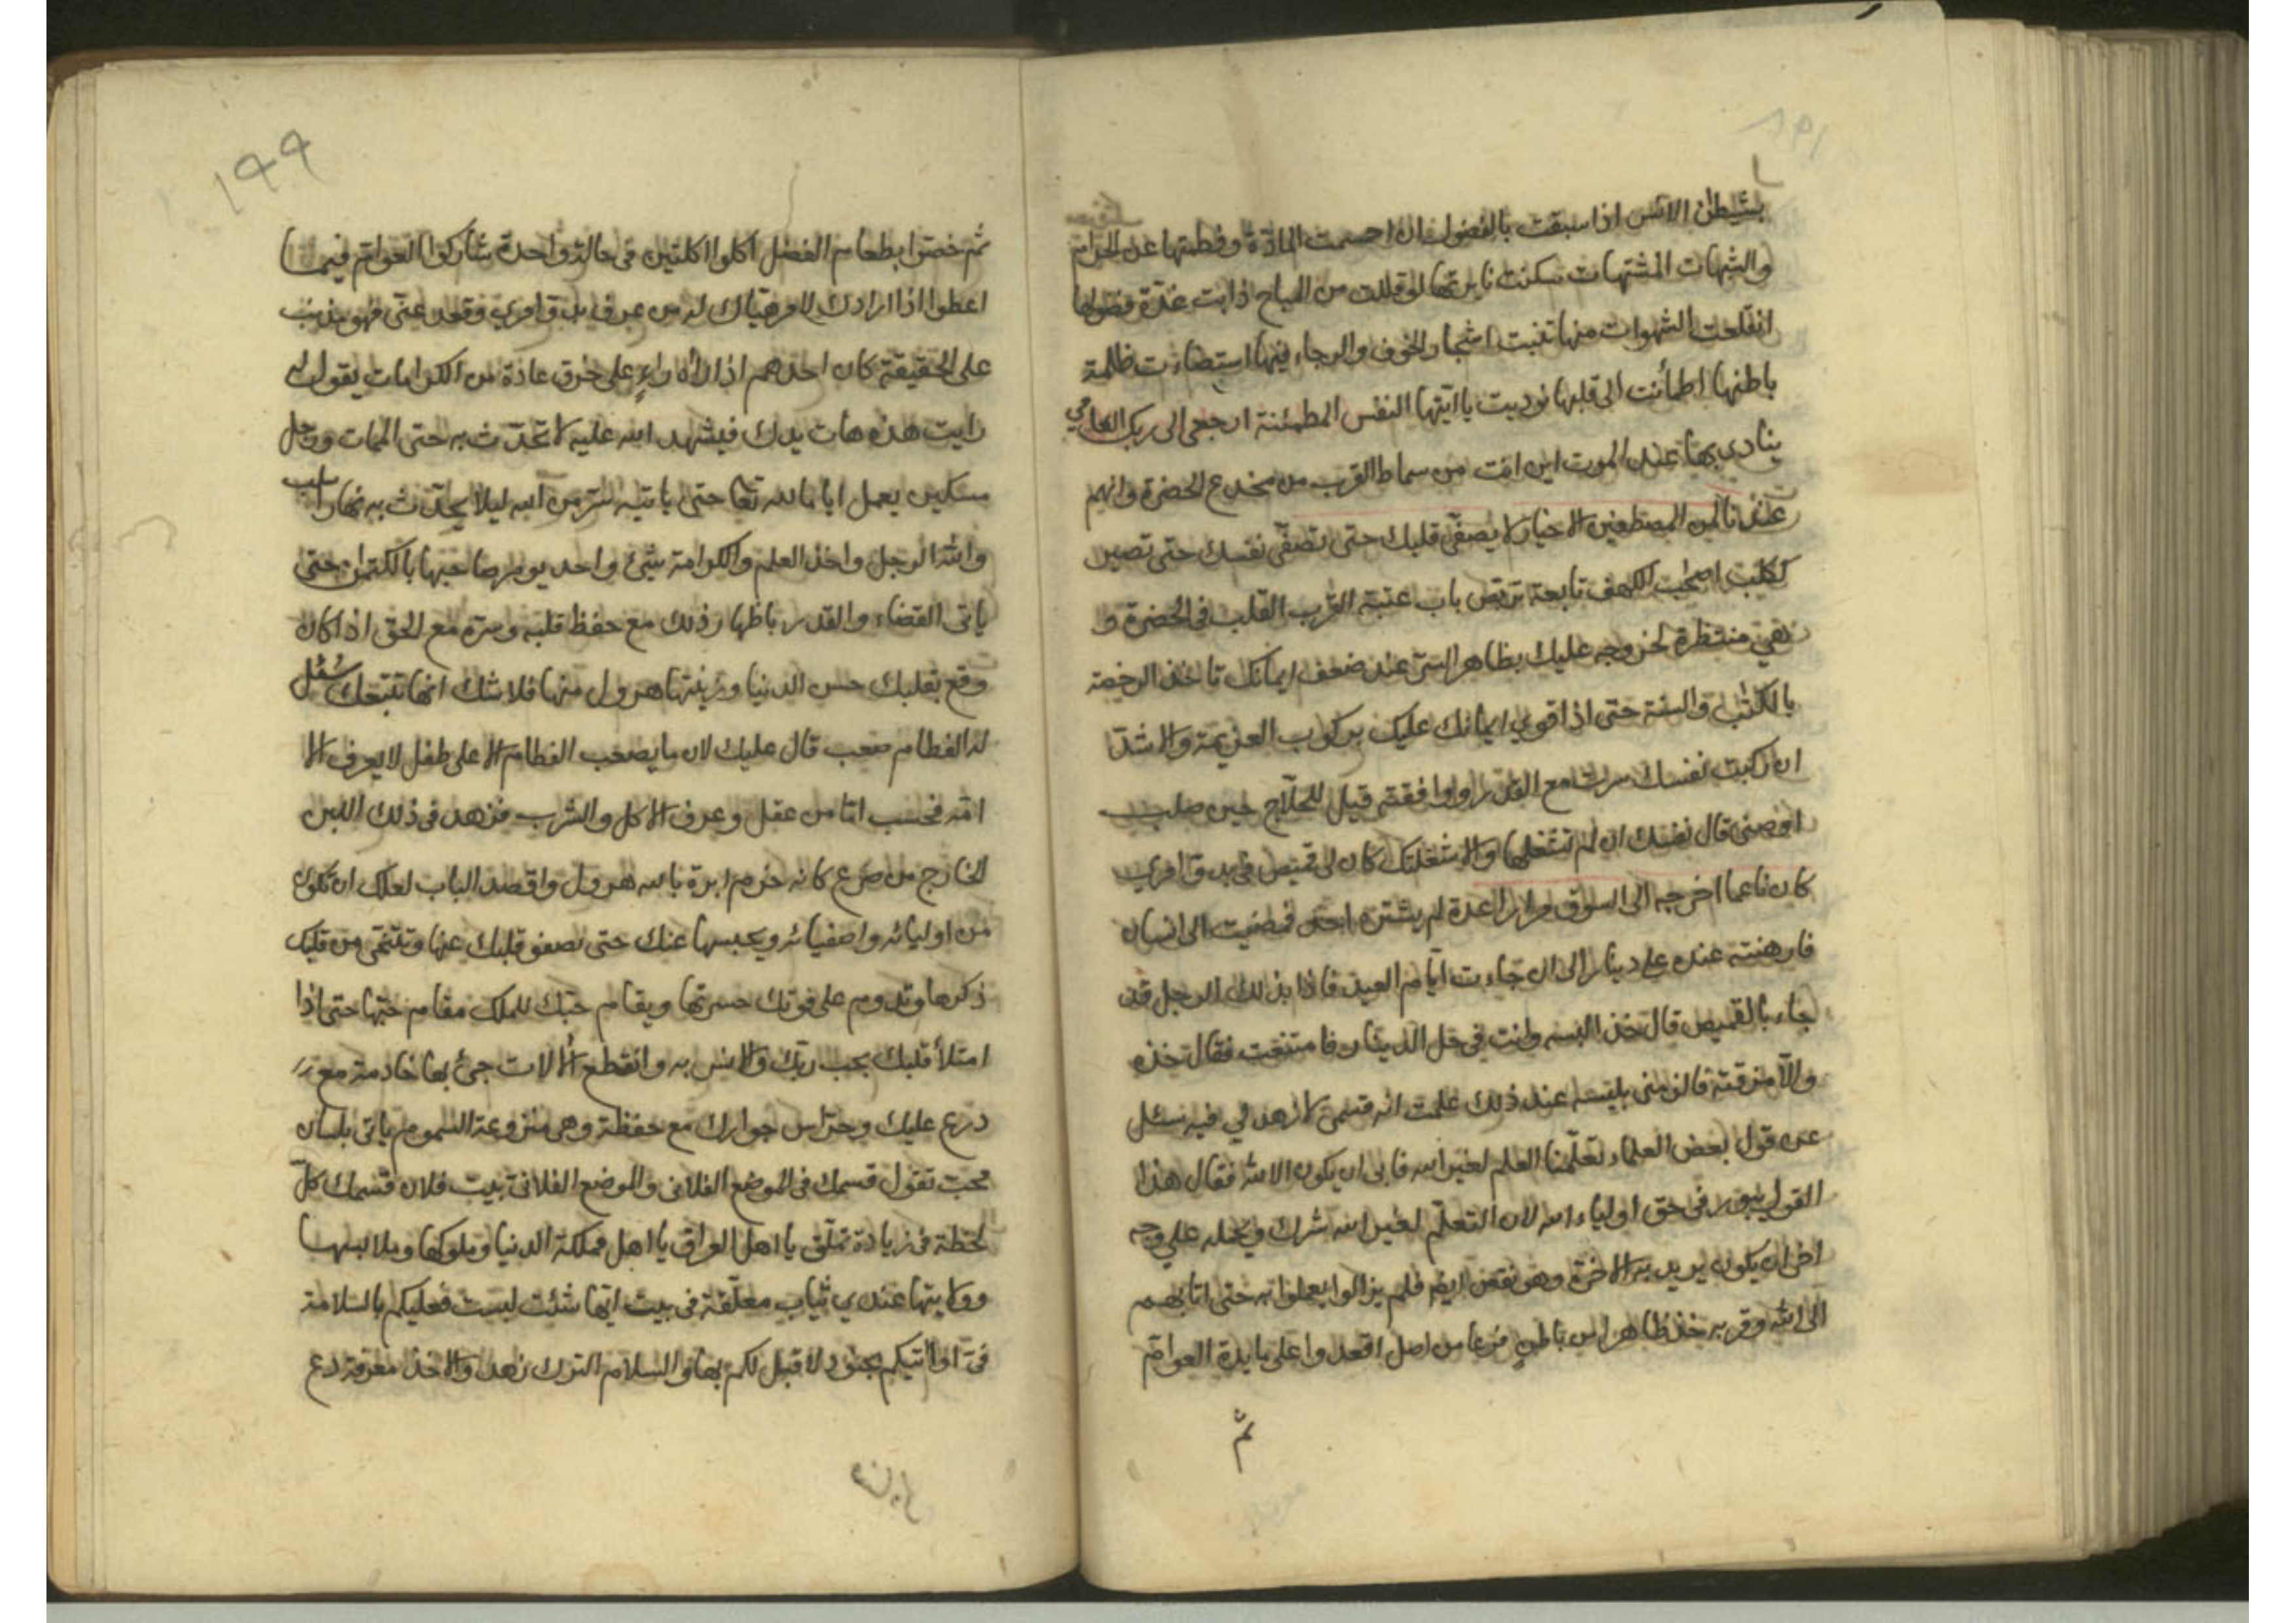 بشيطن الانس اذا سبقت بالفضول ان احسمت المادّة وفطمتها عن الحرام
والشبهات المشتهات سكنت نايرتها لو قللت من المباح ذابت غدّة فضولها
انقلعت الشهوات منها تنبت اشجار الخوف والرجاء فيها استضاءت ظلمة
باطنها اطمأنت الى قلبها نوديت يا ايتها النفس المطمئنة ارجعي الى ربك العامي
ينادي بها عند الموت اين انت من سماط القرب من مخدع الحضرة وانهم
عندنا لمن المصطفين الاخيار لا يصفّى قلبك حتى تصفّى نفسك حتى تصير
ككلب اصحٰب الكهف تابعة تربض باب عتبة القرب القلب في الحضرة و
هي منتظرة لخروجه عليك بظاهر الشئ عند ضعف ايمانك تاخذ الرخصة
بالكتٰب والسنة حتى اذا قوي ايمانك عليك بركوب العزيمة والاشدّ
ان ركبت نفسك سرت مع القدر ووافقته قيل للحلّاج حين صلب
اوصني قال نفسك ان لم تشغلها والا شغلتك كان لي قميص في بدو امري
كان ناعما اخرجه الى السوق مرارا عدة لم يشتره احد فمضيت الى انسان
فارهنته عنده على دينار الى ان جاءت ايام العيد فاذا بذلك الرجل قد
جاء بالقميص قال خذ البسه وانت في حل الدينار فامتنعت فقال خذه
والّا مزقته فالزمني بلبسه عند ذلك علمت انه قسمي لازهد لي فيه سئل
عن قول بعض العلماء تعلّمنا العلم لغير الله فابى ان يكون الا لله فقال هذا
القول يبعد في حق اولياء الله لان التعلّم لغير الله شرك ويحمله على وجه
اخر ان يكون يريد به الاخرة وهو نقص ايضا فلم يزالوا يعملوا به حتى اتا بهم
الى الله وقربه خذ ظاهرا من باطن فرعا من اصل اقعدوا على مايدة العوام
ثم
١٩٩
ثم خصّوا بطعام الفضل اكلوا اكلتين في حالة واحدة شاركوا العوام فيما
اعطوا اذا ارادك لامر هيّاك له من عرف بدو امري وقعد عنّي فهو يذنب
على الحقيقة كان احدهم اذا راٰه راءٍ على خرق عادة من الكرامات يقول له
رايت هذه هات يدك فيشهد الله عليه لا تحدّث به حتى الممات ورجل
مسكين يعمل اياما لله تعا حتى ياتيه سرّ من الله ليلا يحدّث به نهارا سلب
والله الرجل واخذ العلم والكرامة شئ واحد يومر صاحبها بالكتمان حتى
ياتي القضاء والقدر باظهار ذلك مع حفظ قلبه وسرّه مع الحق اذا كان
وقع بقلبك حسن الدنيا وزينتها هرول منها فلا شك انها تتبعك سُئل
له الفطام صعب قال عليك لان ما يصعب الفطام الا على طفل لا يعرف الا
امّه فحسب امّا من عقل وعرف الاكل والشرب فزهد في ذلك اللبن
الخارج من ضرع كانه خرم ابرة يا الله هرول واقصد الباب لعلك ان تكون
من اوليائه واصفيائه ويحبسها عنك حتى يصفو قلبك عنها وتنتفي من قلبك
ذكرها وتدوم على فوتك حسرتها ويقام حبّك للملك مقام حبّها حتى اذا
امتلأ قلبك بحب ربّك والانس به وانقطع الالات جئ بها خادمة مع
درع عليك وحرّاس جوارك مع حفظة وهي منزوعة السموم ياتي بلسان
محب تقول قسمك في الموضع الفلاني والموضع الفلاني بيت فلان قسمك كلّ
لحظة في زيادة تملّق يا اهل العراق يا اهل مملكة الدنيا وملوكها وملابسها
وولايتها عندي ثياب معلّقة في بيت ايها شئت لبست فعليكم بالسلامة
فيّ او اٰتيكم بجنود لا قبل لكم بها والسلام الترك زهد والاخذ معرفة دع